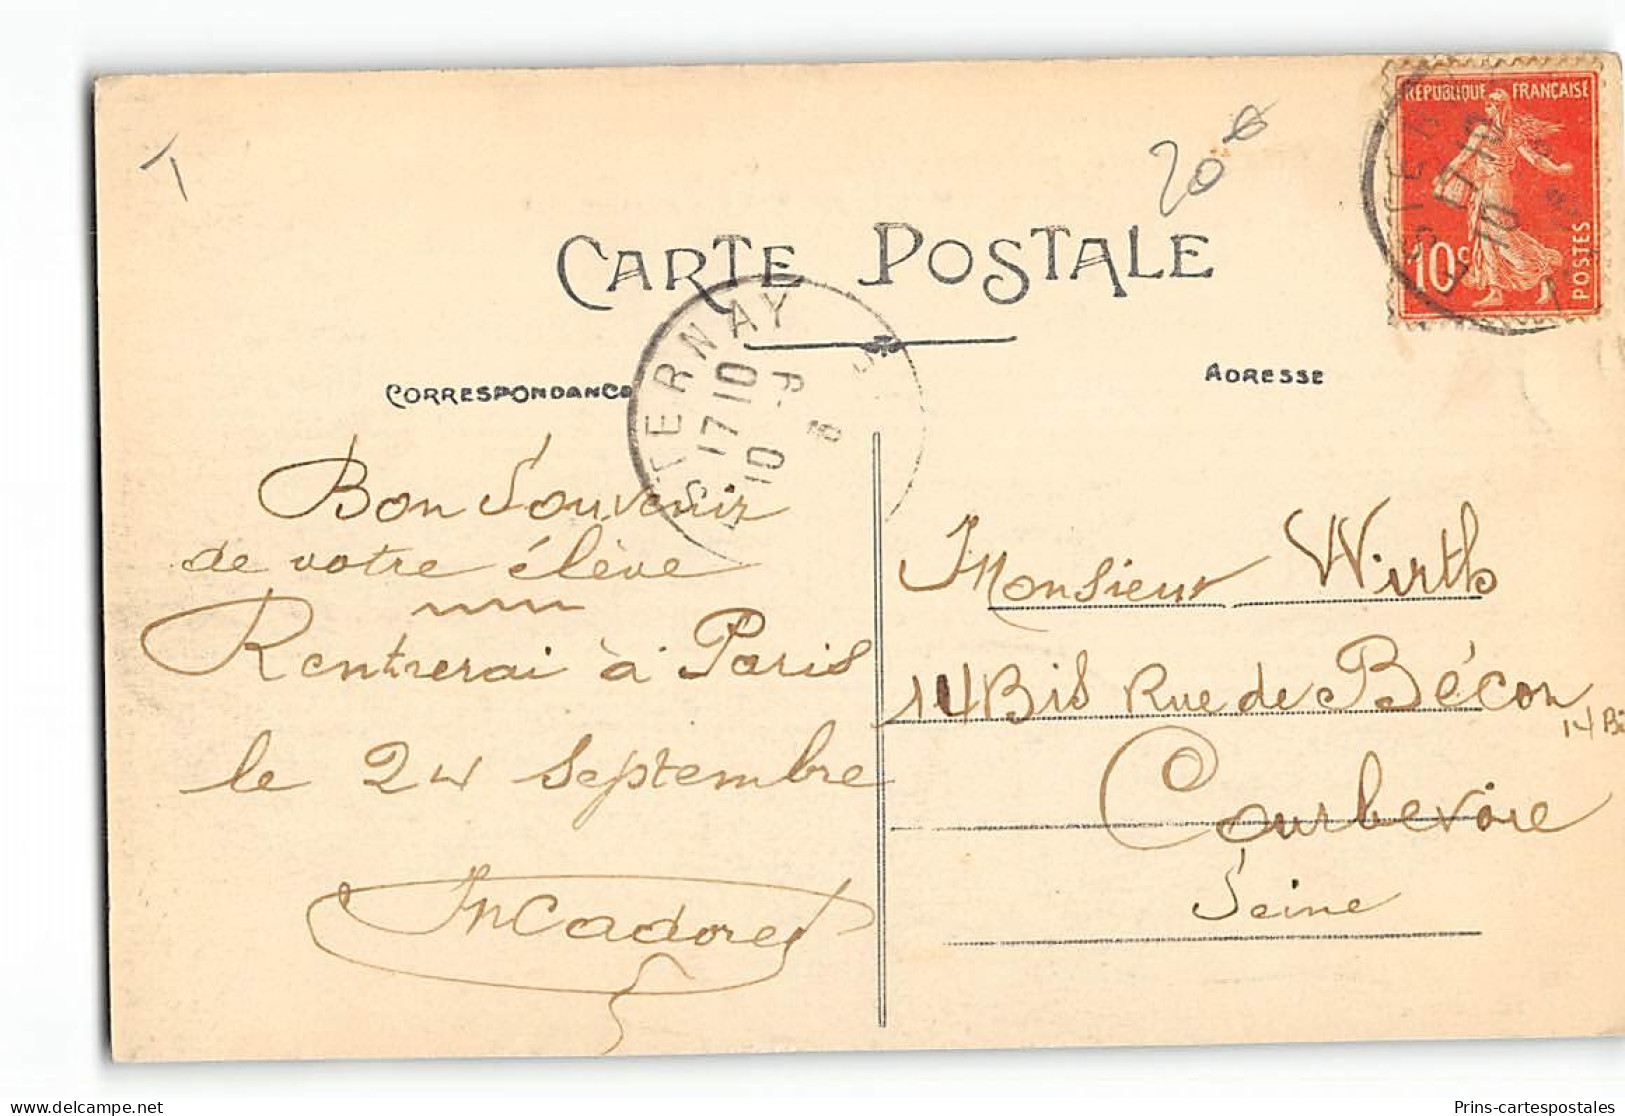 20€
CARTE POSTALE
RÉPUBLIQUE FRANÇAISE
10c POSTES
CORRESPONDANCE
ADRESSE
ESTERNAY
17 10
10 - 9
Bon Souvenir
de votre élève
Rentrerai à Paris
le 24 septembre
Monsieur Wirth
14 Bis Rue de Bécon
14 Bi
Courbevoie
Seine
Prins-cartespostales